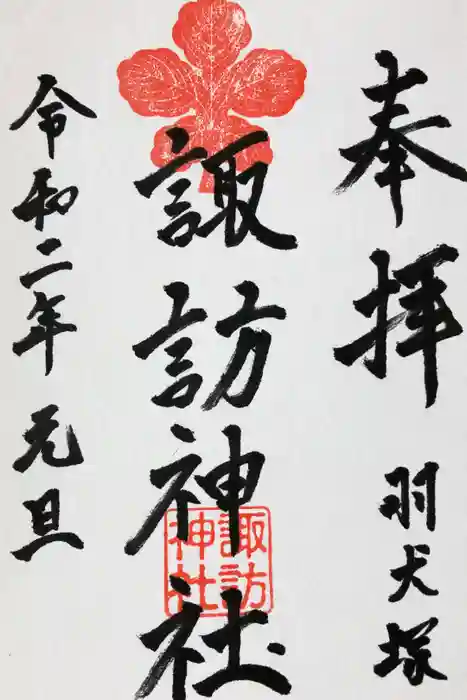 奉拝
羽犬塚
諏訪神社
諏訪
神社
令和二年 元旦